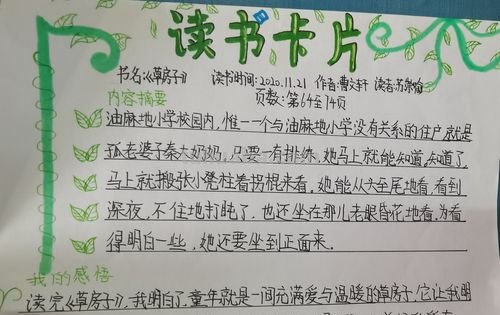 读书卡片
书名:《草房子》 读书时间:2020.11.21 作者:曹文轩 读者:苏
内容摘要 页数:第64至74页
油麻地小学校园内,惟一个与油麻地小学没有关系的住户就是
孤老婆子秦大奶奶,只要一有排练,她马上就能知道,知道了
马上就搬张小凳柱着拐棍来看,她能从头至尾地看,看到
深夜,不住地打盹了,也还坐在那儿老眼昏花地看,为看
得明白一些,她还要坐到正面来.
我的感悟
读完《草房子》,我明白了,童年就是一间充满爱与温暖的草房子,它让我明